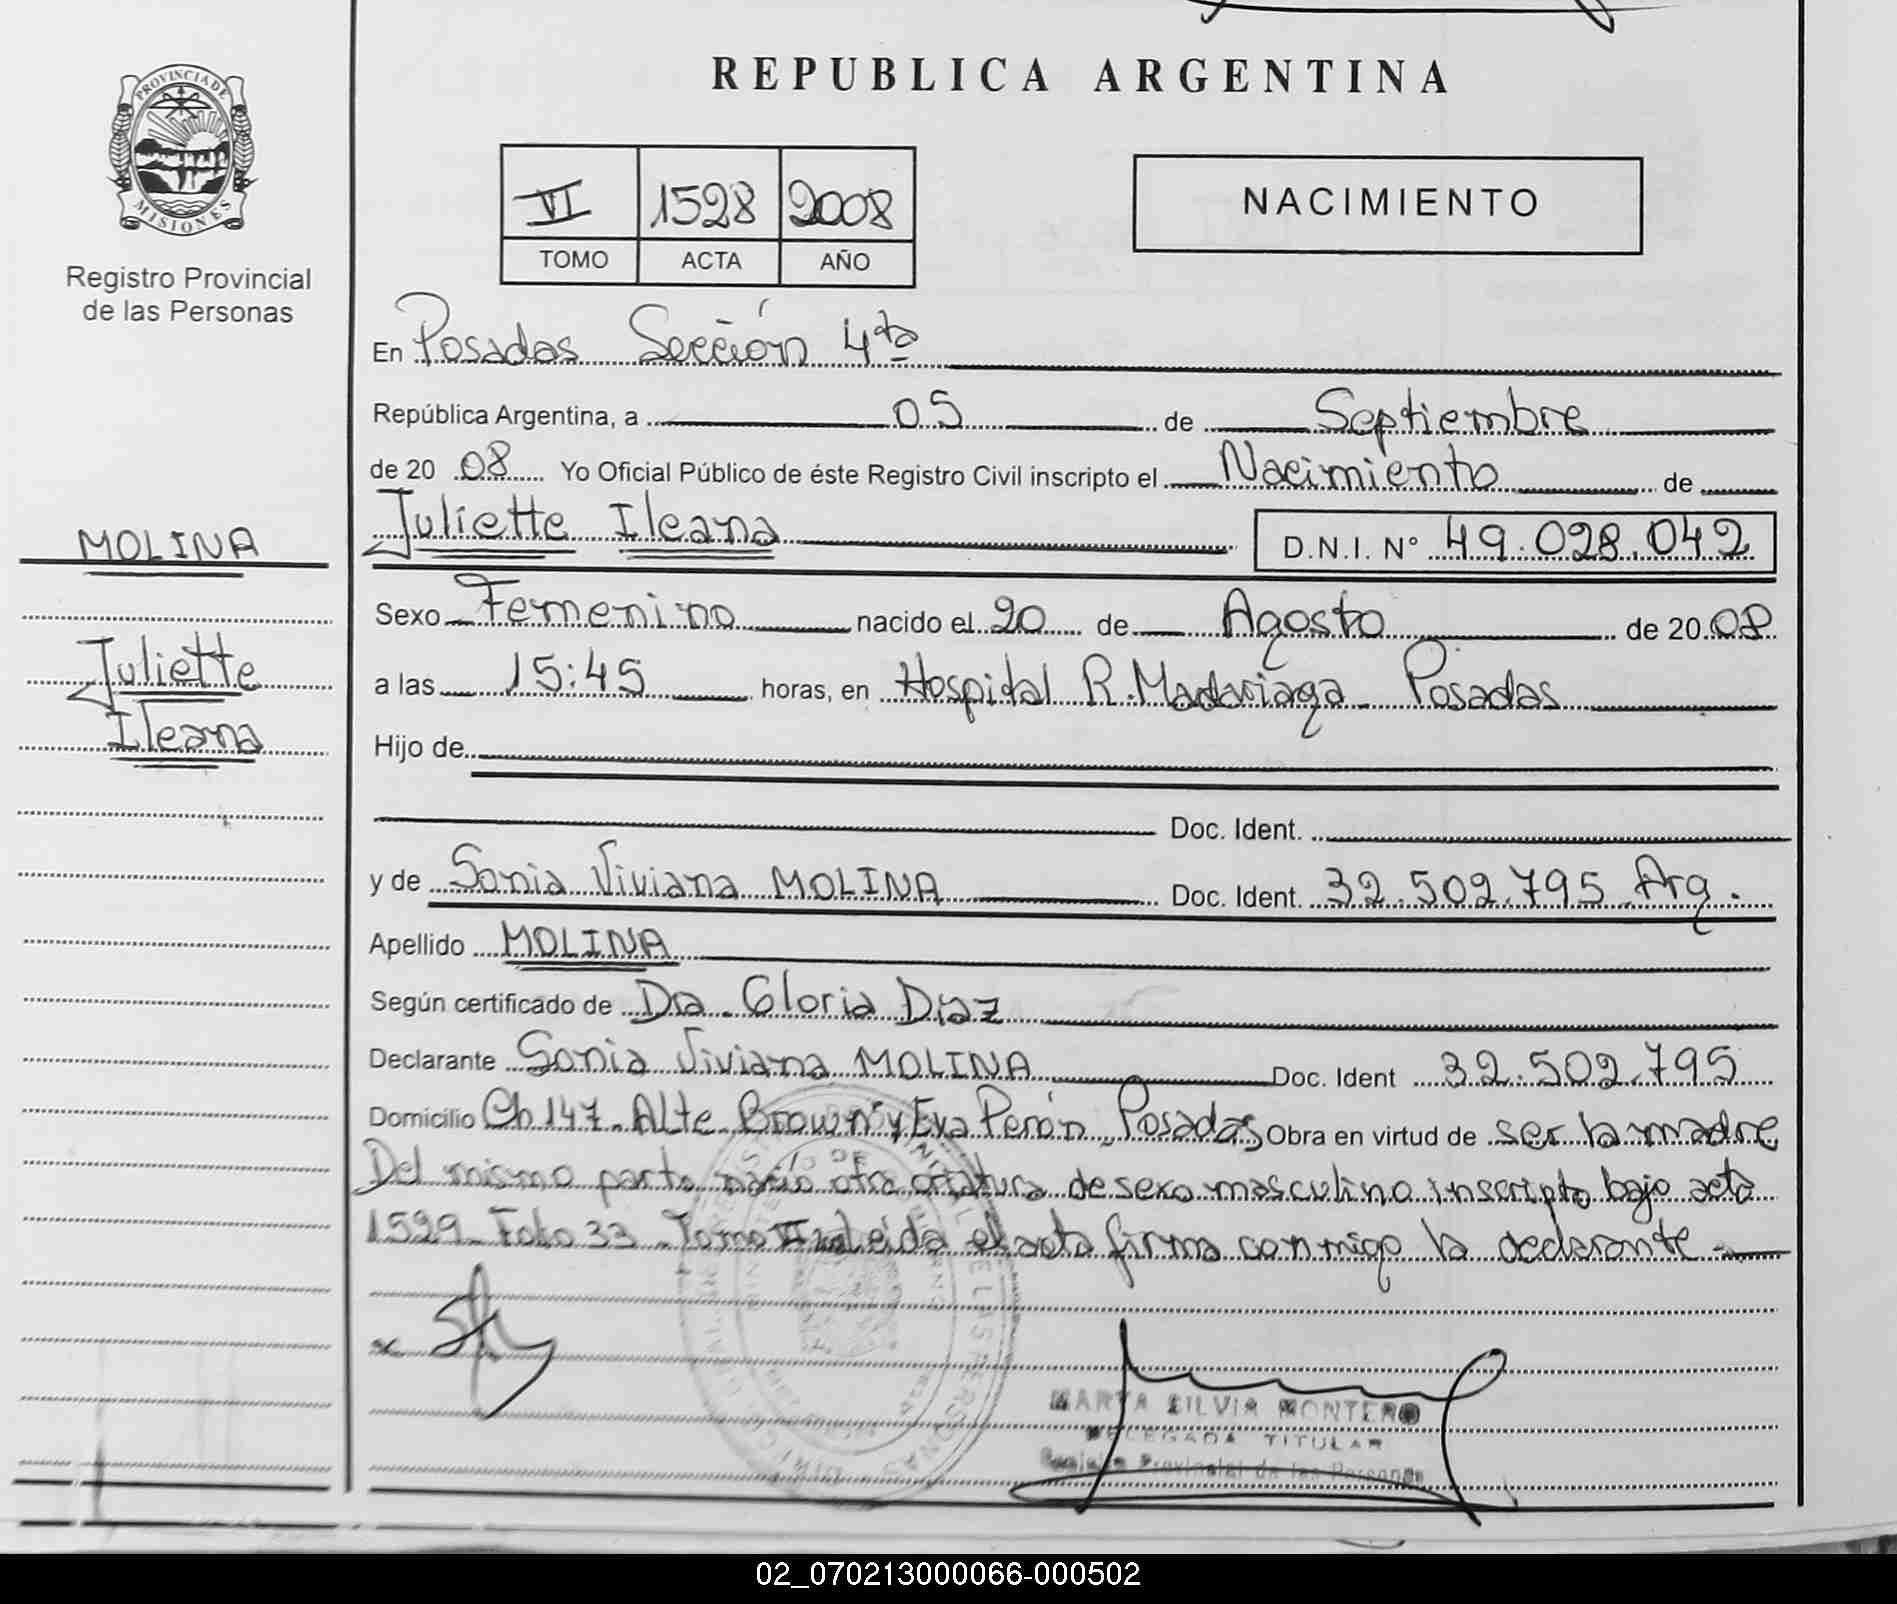 REPUBLICA ARGENTINA
PROVINCIA DE
MISIONES
Registro Provincial
de las Personas
VI 1528 2008
TOMO ACTA AÑO
NACIMIENTO
En Posadas Sección 4ta
República Argentina, a 05 de Septiembre
de 20 08 Yo Oficial Público de éste Registro Civil inscripto el Nacimiento de
Juliette Ileana D.N.I. N° 49.028.042
MOLINA
Juliette
Ileana
Sexo Femenino nacido el 20 de Agosto de 20 08
a las 15:45 horas, en Hospital R. Madariaga - Posadas
Hijo de
Doc. Ident.
y de Sonia Viviana MOLINA Doc. Ident. 32.502.795 Arg.
Apellido MOLINA
Según certificado de Dra. Gloria Diaz
Declarante Sonia Viviana MOLINA Doc. Ident 32.502.795
Domicilio Ch 147 - Alte Brown y Eva Perón - Posadas Obra en virtud de ser la madre
Del mismo parto nacio otra criatura de sexo masculino inscripto bajo acta
1529 - Folio 33 - Tomo VI leida el acta firma conmigo la declarante -
MARTA SILVIA MONTERO
DELEGADA TITULAR
Provincial de las Personas
02_070213000066-000502